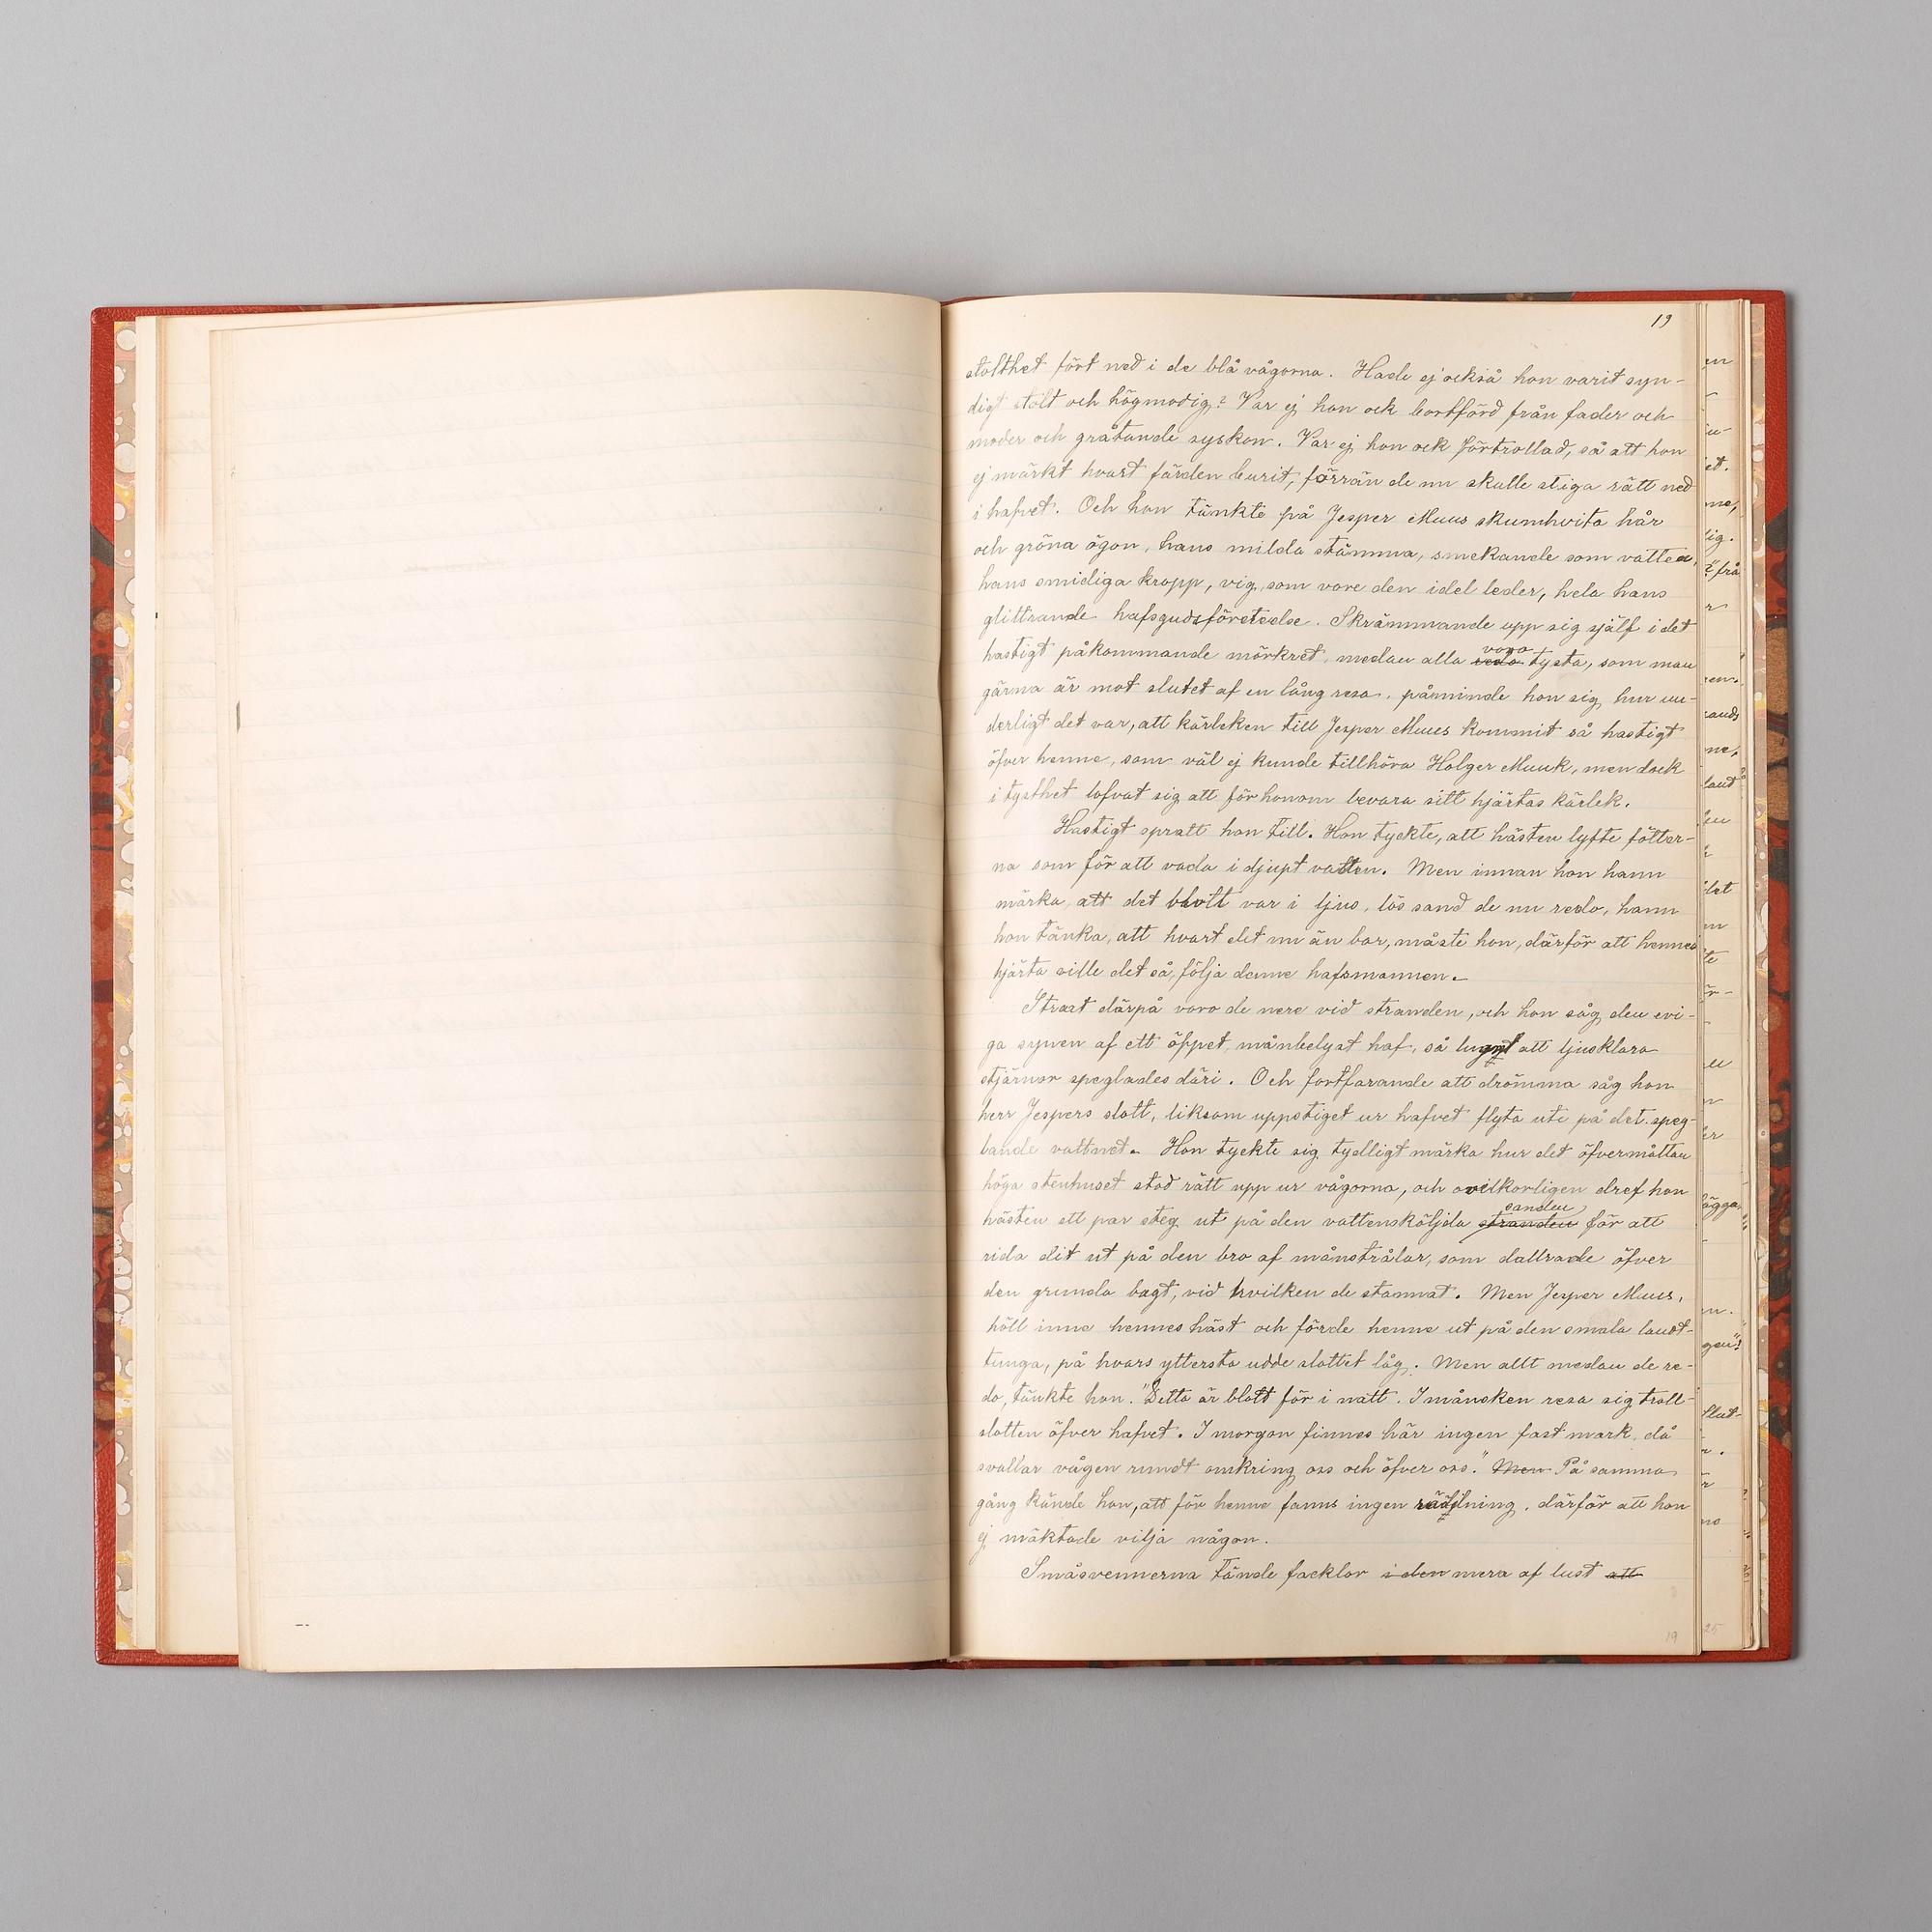 19
stolthet fört ned i de blå vågorna. Hade ej också hon varit syn-
digt stolt och högmodig? Var ej hon ock bortförd från fader och
moder och gråtande syskon. Var ej hon ock förtrollad, så att hon
ej märkt hvart färden burit, förrän de nu skulle stiga rätt ned
i hafvet. Och hon tänkte på Jesper Muus skumhvita hår
och gröna ögon, hans milda stämma, smekande som vatten,
hans smidiga kropp, vig, som vore den idel leder, hela hans
glittrande hafsgudsföreteelse. Skrämmande upp sig själf i det
vora
hastigt påkommande mörkret, medan alla redo tysta, som man
gärna är mot slutet af en lång resa, påminde hon sig, hur un-
derligt det var, att kärleken till Jesper Muus kommit så hastigt
öfver henne, som väl ej kunde tillhöra Holger Muuk, men dock
i tysthet lofvat sig att för honom bevara sitt hjärtas kärlek.
Hastigt spratt hon till. Hon tyckte, att hästen lyfte fötter-
na som för att vada i djupt vatten. Men innan hon hann
märka, att det blott var i ljus, lös sand de nu redo, hann
hon tänka, att hvart det nu än bar, måste hon, därför att hennes
hjärta ville det så, följa denne hafsmannen.
Straxt därpå voro de nere vid stranden, och hon såg den evi-
ga synen af ett öppet, månbelyst haf, så lugnt att ljusklara
stjärnor speglades däri. Och fortfarande att drömma såg hon
herr Jespers slott, liksom uppstiget ur hafvet flyta ute på det speg-
lande vattnet. Hon tyckte sig tydligt märka hur det öfvermåttan
höga stenhuset stod rätt upp ur vågorna, och ovilkorligen dref hon
sanden
hästen ett par steg ut på den vattensköljda stranden för att
rida dit ut på den bro af månstrålar, som dallrade öfver
den grunda bugt, vid hvilken de stannat. Men Jesper Muus,
höll inne hennes häst och förde henne ut på den smala landt-
tunga, på hvars yttersta udde slottet låg. Men allt medan de re-
do, tänkte hon. "Detta är blott för i natt. I månsken resa sig troll-
slotten öfver hafvet. I morgon finnes här ingen fast mark, då
svallar vågen rundt omkring oss och öfver oss." Men På samma
gång kände hon, att för henne fanns ingen räddning, därför att hon
ej mäktade vilja någon.
Småsvennerna tände facklor i den mera af lust att
19
25